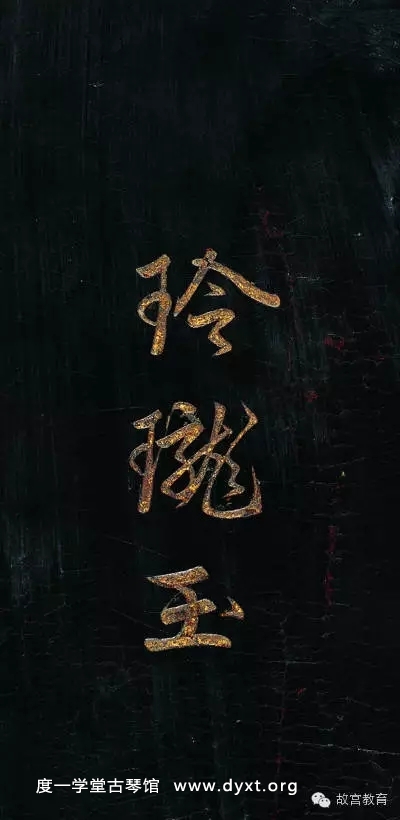 玲
瓏
玉
度一学堂古琴馆 www.dyxt.org
故宫教育